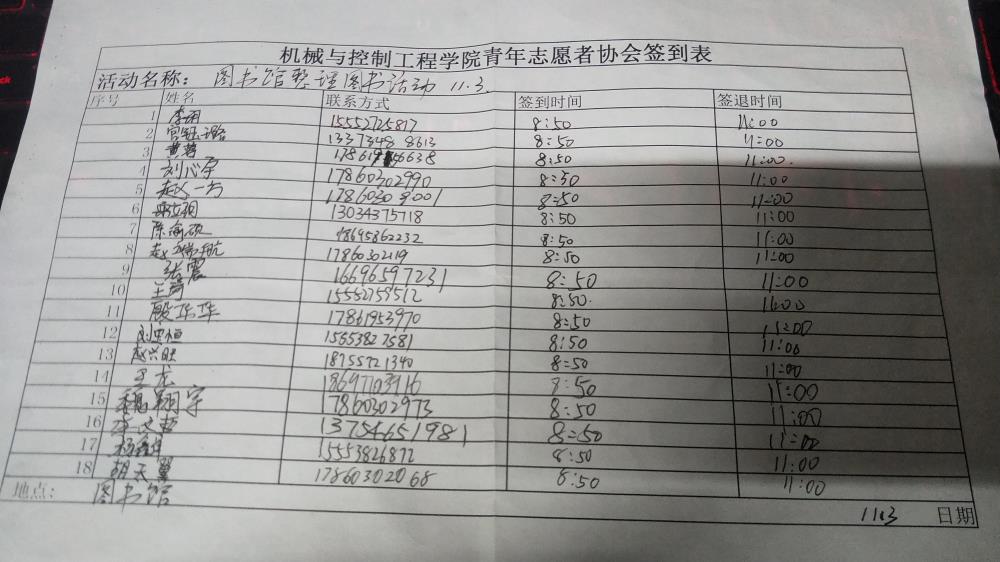 机械与控制工程学院青年志愿者协会签到表
活动名称: 图书馆整理图书活动 11.3
序号 姓名 联系方式 签到时间 签退时间
1 15552725817 8:50 11:00
2 1337348 8613 8:50 11:00
3 黄蓉 8:50 11:00.
4 刘心宇 17860302990 8:50 11:00
5 赵一方 8:50 11:00
6 13034375718 8:50 11:00
7 18695862232 8:50 11:00
8 赵瑞航 17860302119 8:50 11:00
9 张震 16696597231 8:50 11:00
10 15552759512 8:50. 11:00
11 殷华华 17861953970 8:50 11:00
12 15553827581 8:50 11:00
13 赵兴旺 18755721340 8:50 11:00
14 王龙 18697103916 8:50 11:00
15 魏翔宇 17860302973 8:50 11:00
16 李文哲 13754651981 8:50 11:00
17 15553826872 8:50 11:00
18 胡天翼 17860302068 8:50 11:00
地点: 图书馆
11.3 日期